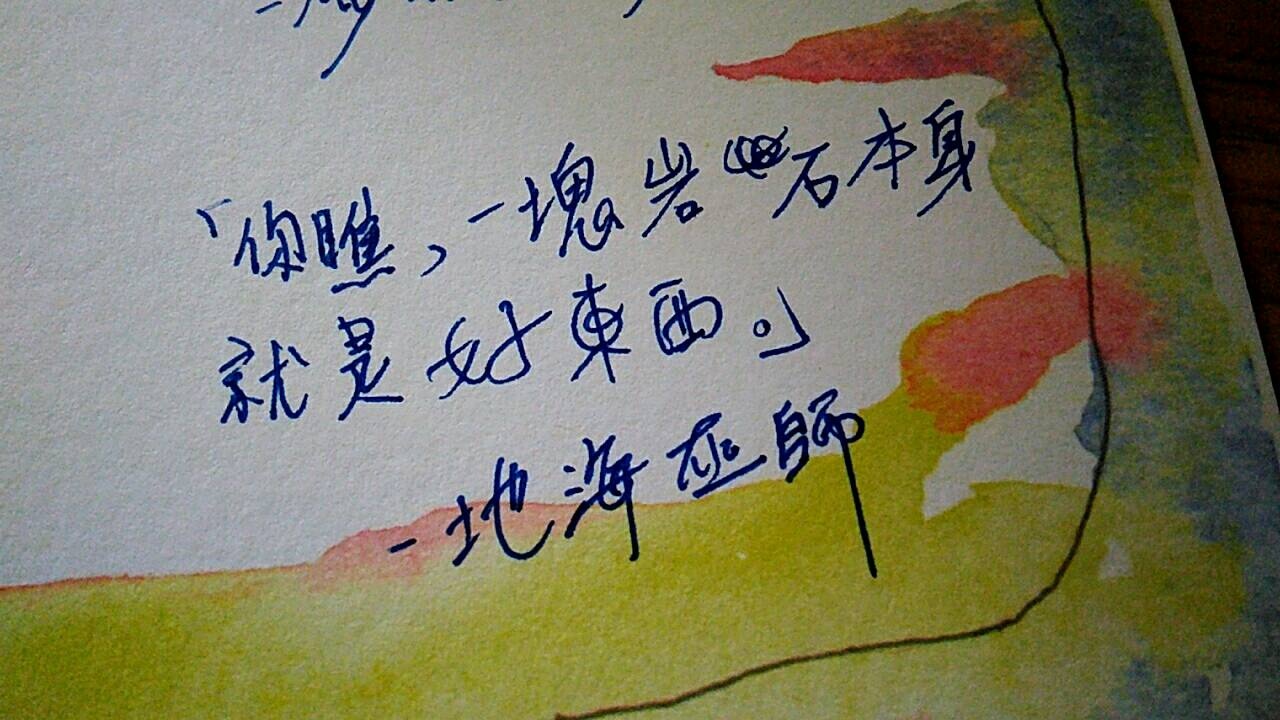 「你瞧，一塊岩石本身
就是好東西。」
－地海巫師